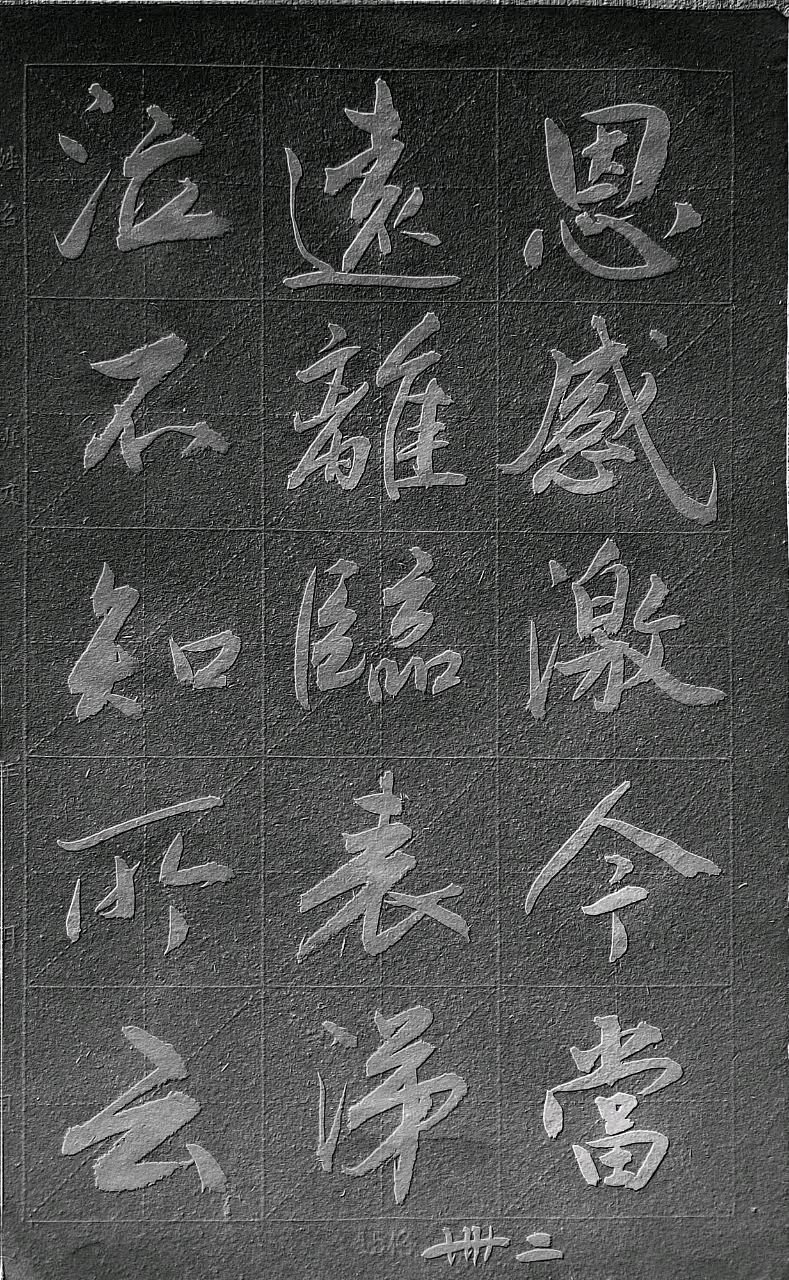 恩感激今當
遠離臨表涕
泣不知所云
卌二